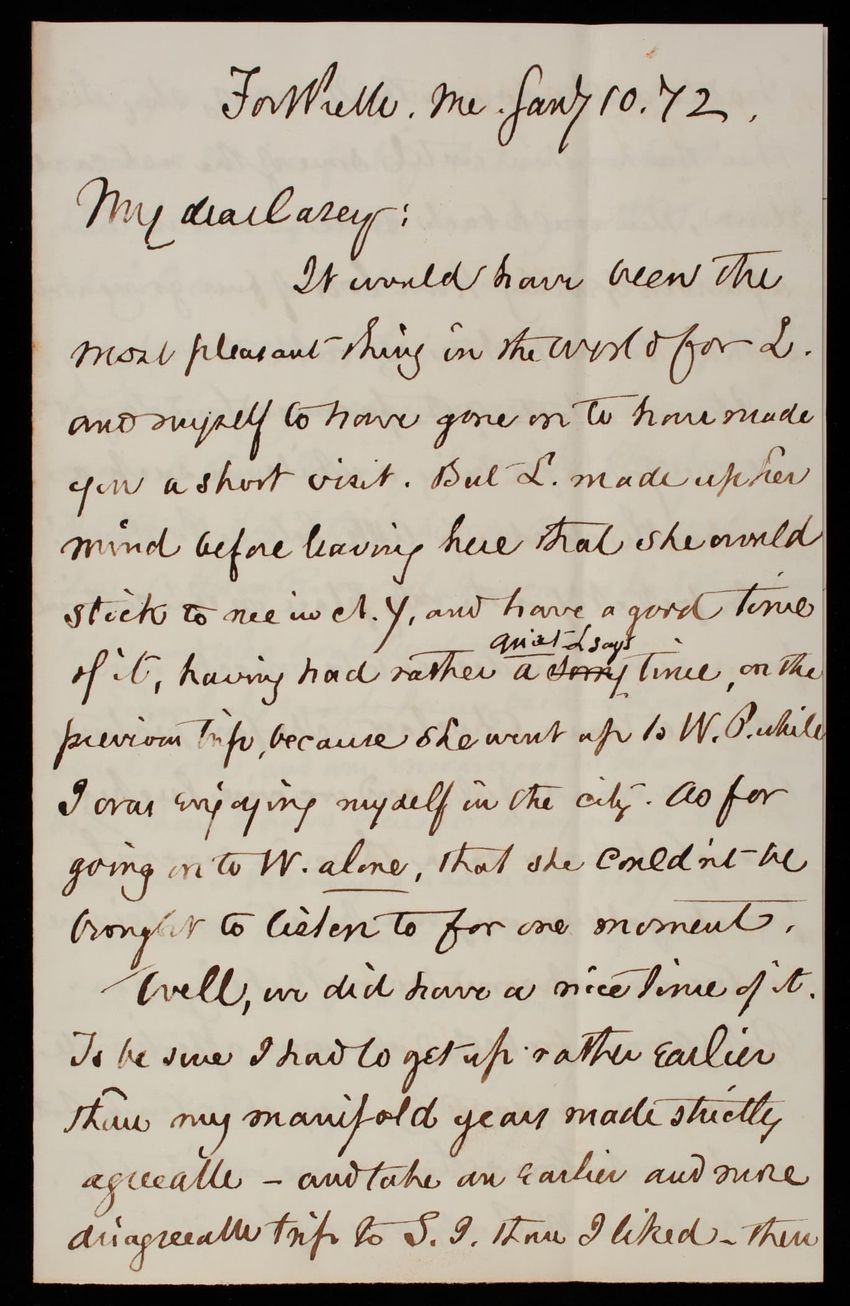 Fort Preble. Me. Jany 10. 72.
My dear Casey:
It would have been the
most pleasant thing in the world for L.
and myself to have gone on to have made
you a short visit. But L. made up her
mind before leaving here that she would
stick to me in N.Y, and have a good time
quiet L says
of it, having had rather a sorry time, on the
previous trip, because she went up to W.P. while
I was enjoying myself in the city. As for
going on to W. alone, that she could'nt be
brought to listen to for one moment.
Well, we did have a nice time of it.
To be sure I had to get up rather earlier
than my manifold years made strictly
agreeable - and take an earlier and more
disagreeable trip to S.I. than I liked - then